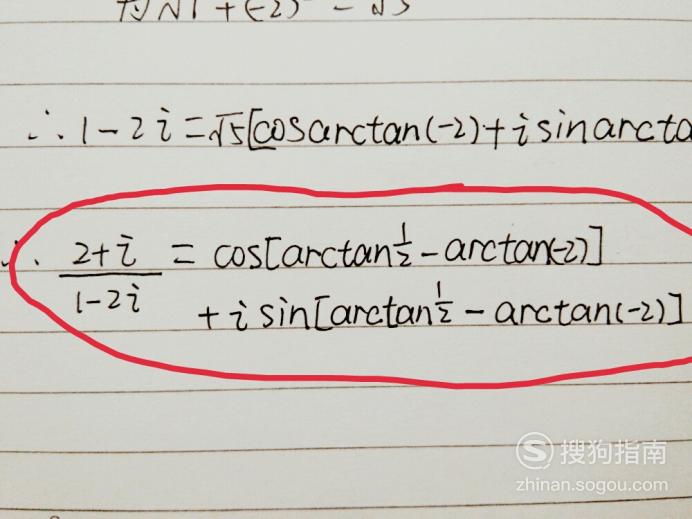 ∴ 1-2i=√5[cosarctan(-2)+isinarcta
∴ (2+i)/(1-2i) = cos[arctan1/2-arctan(-2)]
+isin[arctan1/2-arctan(-2)]
搜狗指南
zhinan.sogou.com